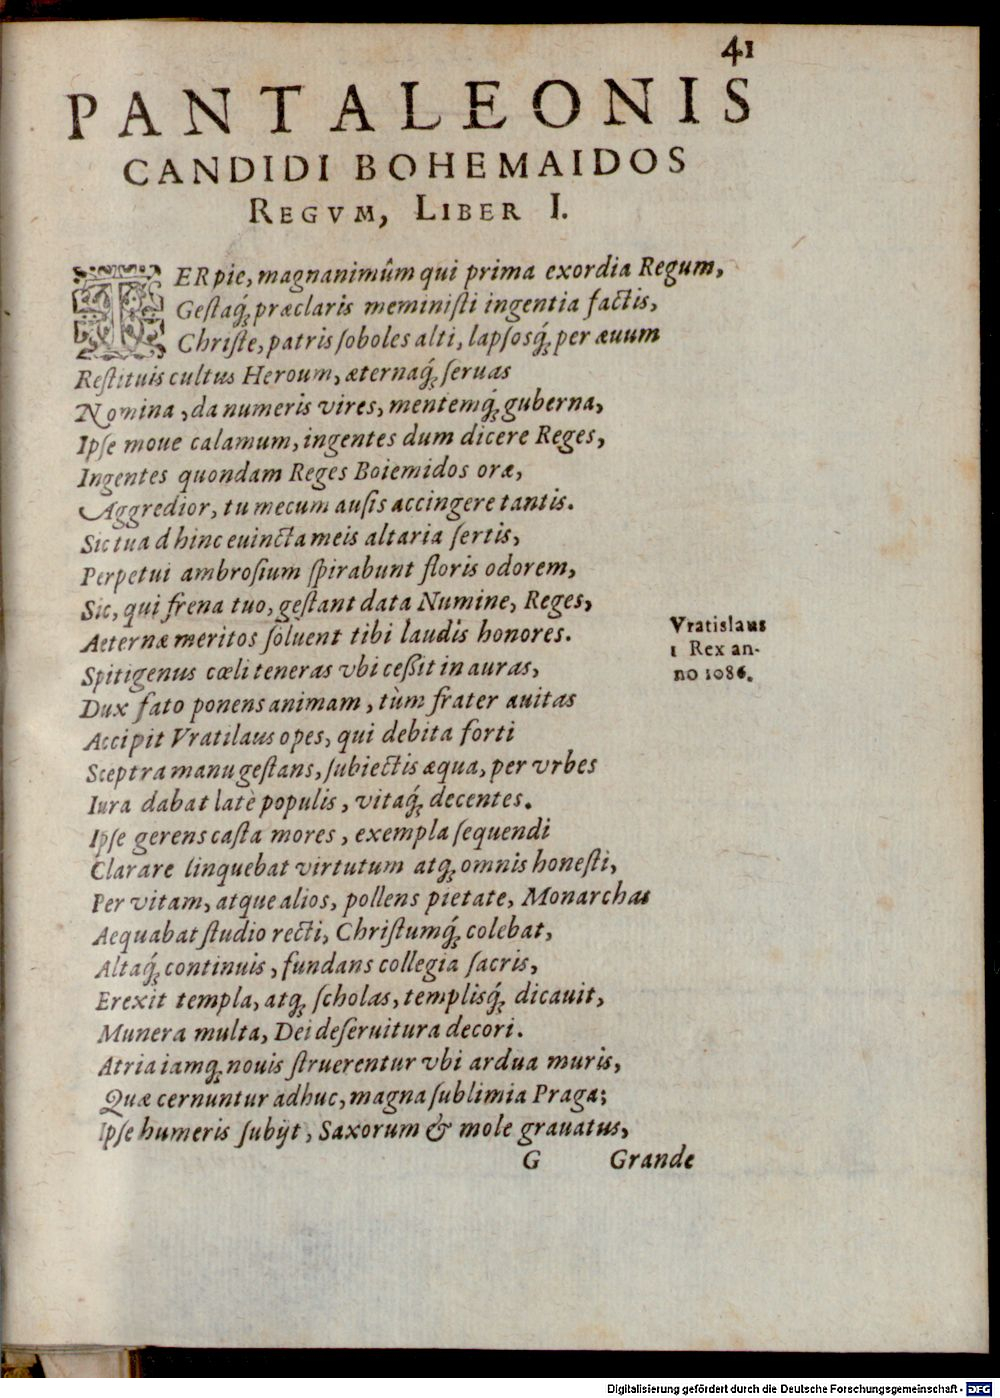 41
PANTALEONIS
CANDIDI BOHEMAIDOS
REGVM, LIBER I.
TER pie, magnanimûm qui prima exordia Regum,
Gestaq́; præclaris meministi ingentia factis,
Christe, patris soboles alti, lapsosq́; per æuum
Restituis cultus Heroum, æternaq́; seruas
Nomina, da numeris vires, mentemq́; guberna,
Ipse moue calamum, ingentes dum dicere Reges,
Ingentes quondam Reges Boiemidos oræ,
Aggredior, tu mecum ausis accingere tantis.
Sic tua dhinc euincta meis altaria sertis,
Perpetui ambrosium spirabunt floris odorem,
Sic, qui frena tuo, gestant data Numine, Reges,
Aeternæ meritos soluent tibi laudis honores.
Spitigenus cœli teneras vbi cessit in auras,
Dux fato ponens animam, tùm frater auitas
Accipit Vratilaus opes, qui debita forti
Sceptra manu gestans, subiectis æqua, per vrbes
Iura dabat latè populis, vitaq́; decentes.
Ipse gerens casta mores, exempla sequendi
Clarare linquebat virtutum atq; omnis honesti,
Per vitam, atque alios, pollens pietate, Monarchas
Aequabat studio recti, Christumq́; colebat,
Altaq́; continuis, fundans collegia sacris,
Erexit templa, atq; scholas, templisq́; dicauit,
Munera multa, Dei deseruitura decori.
Atria iamq; nouis struerentur vbi ardua muris,
Quæ cernuntur adhuc, magna sublimia Praga;
Ipse humeris subijt, Saxorum & mole grauatus,
G Grande
Vratislaus
1 Rex an-
no 1086.
Digitalisierung gefördert durch die Deutsche Forschungsgemeinschaft - DFG